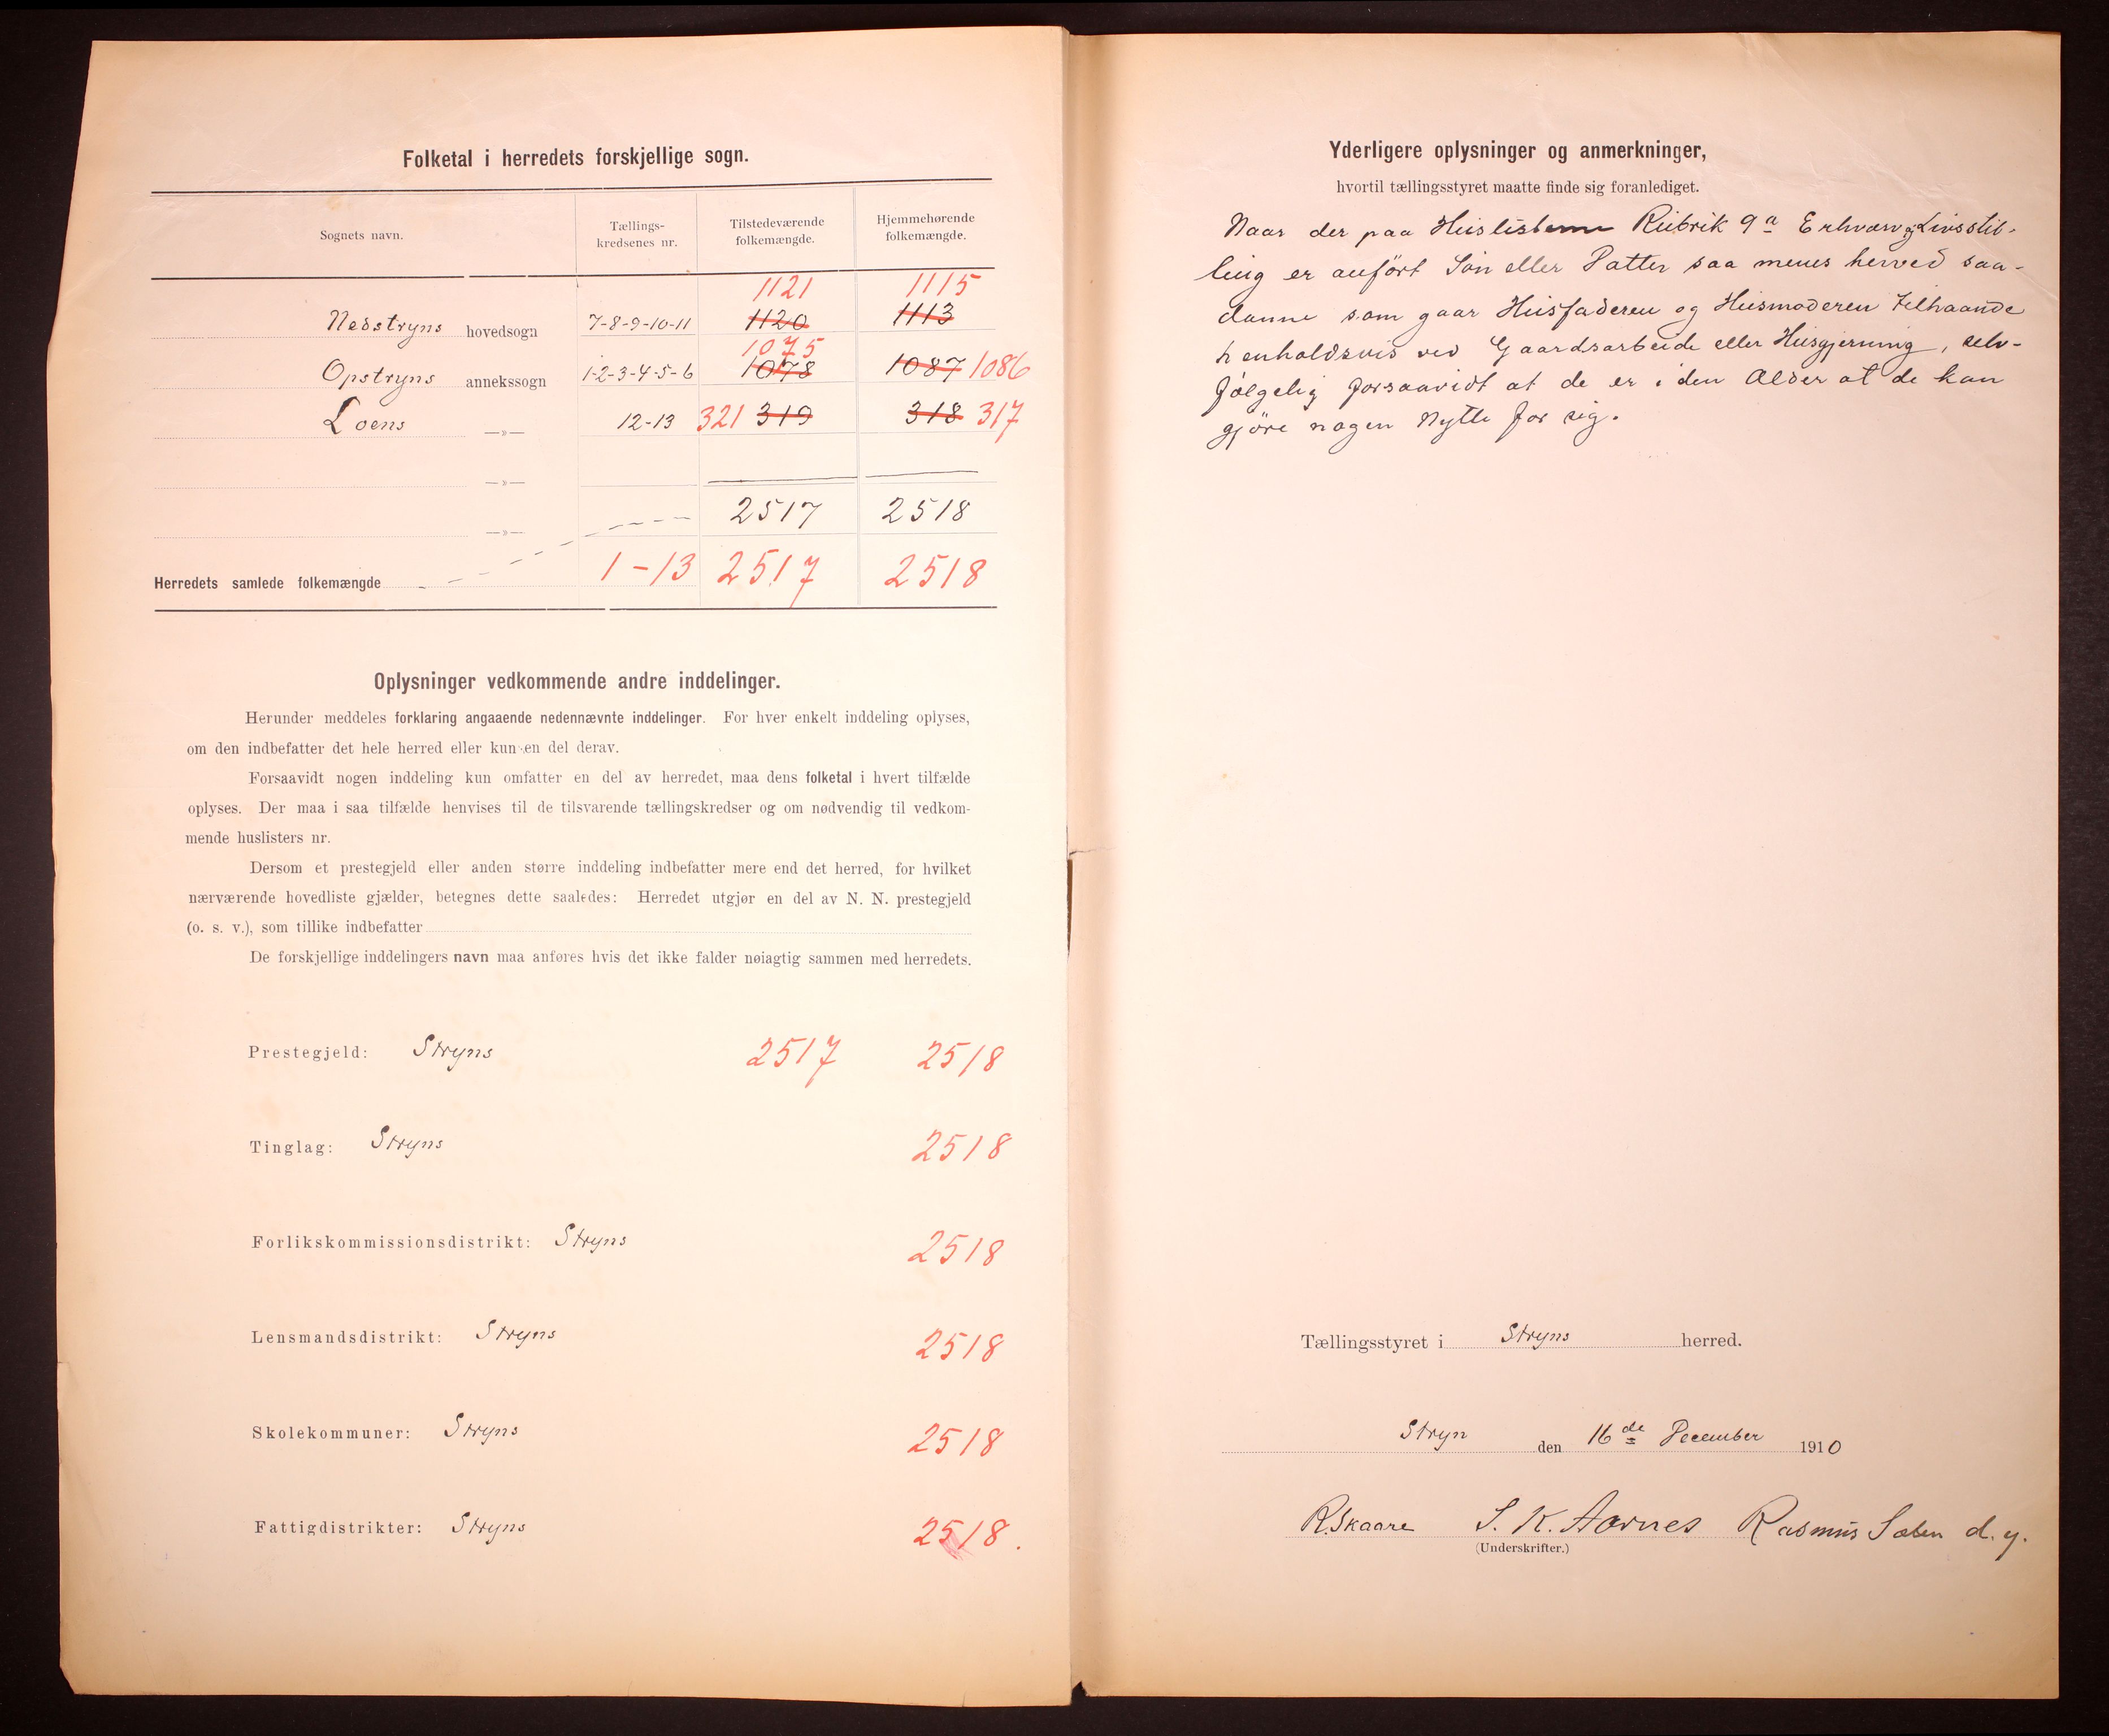 Folketal i herredets forskjellige sogn.
Sognets navn. Tællings-kredsenes nr. Tilstedeværende folkemængde. Hjemmehørende folkemængde.
1121 1115
Nedstryns hovedsogn 7-8-9-10-11 1120 1113
1075
Opstryns annekssogn 1-2-3-4-5-6 1078 1087 1086
Loens —»— 12-13 321 319 318 317
—»—
—»— 2517 2518
Herredets samlede folkemængde 1-13 2517 2518
Oplysninger vedkommende andre inddelinger.
Herunder meddeles forklaring angaaende nedennævnte inddelinger. For hver enkelt inddeling oplyses,
om den indbefatter det hele herred eller kun en del derav.
Forsaavidt nogen inddeling kun omfatter en del av herredet, maa dens folketal i hvert tilfælde
oplyses. Der maa i saa tilfælde henvises til de tilsvarende tællingskredser og om nødvendig til vedkom-
mende huslisters nr.
Dersom et prestegjeld eller anden større inddeling indbefatter mere end det herred, for hvilket
nærværende hovedliste gjælder, betegnes dette saaledes: Herredet utgjør en del av N. N. prestegjeld
(o. s. v.), som tillike indbefatter
De forskjellige inddelingers navn maa anføres hvis det ikke falder nøiagtig sammen med herredets.
Prestegjeld: Stryns 2517 2518
Tinglag: Stryns 2518
Forlikskommissionsdistrikt: Stryns 2518
Lensmandsdistrikt: Stryns 2518
Skolekommuner: Stryns 2518
Fattigdistrikter: Stryns 2518.
Yderligere oplysninger og anmerkninger,
hvortil tællingsstyret maatte finde sig foranlediget.
Naar der paa Huslisterne Rubrik 9a Erhverv og Livsstil-
ling er anført Søn eller Datter saa menes herved saa-
danne som gaar Husfaderen og Husmoderen tilhaande
henholdsvis ved Gaardsarbeide eller Husgjerning, selv-
følgelig forsaavidt at de er i den Alder at de kan
gjöre nogen Nytte for sig.
Tællingsstyret i Stryns herred.
Stryn den 16de December 1910
R. Skaare S. K. Aarnes Rasmus d. y.
(Underskrifter.)